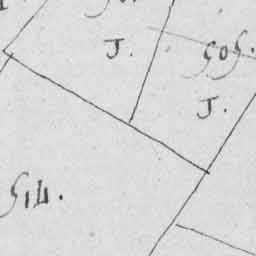 J. 505.
J.
514.